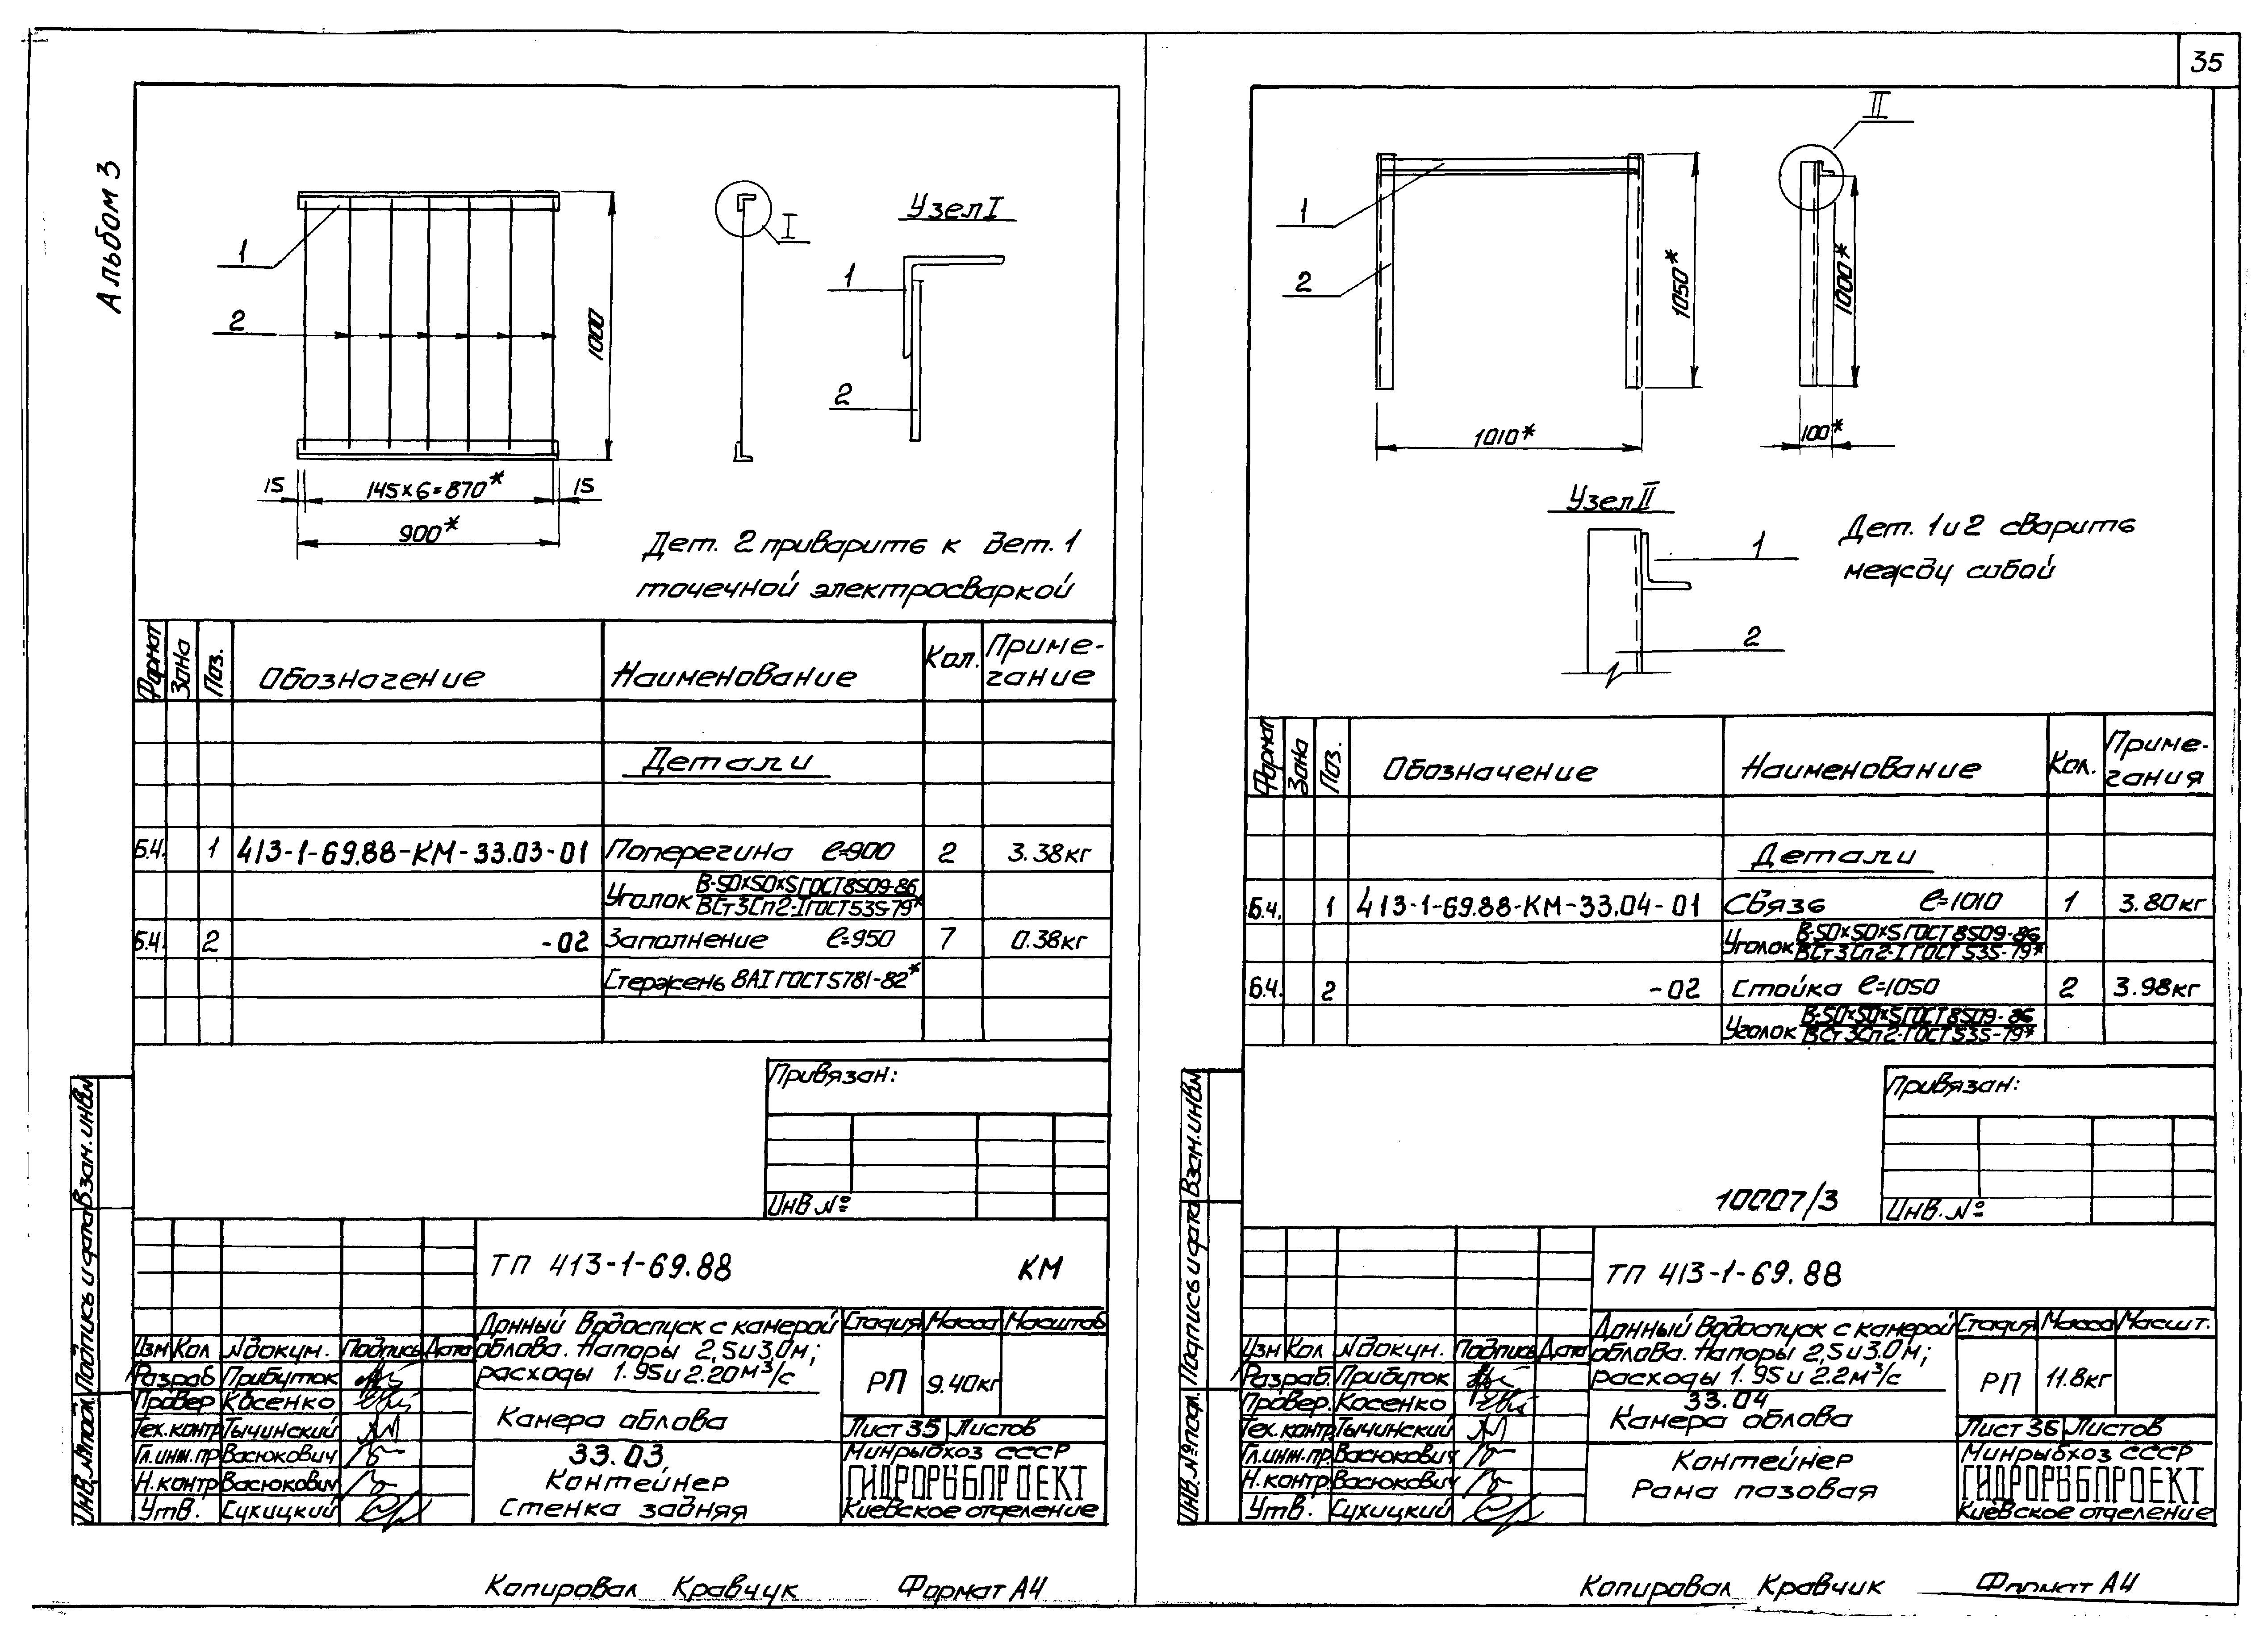 35
Альбом 3
1
2
1000
15
145×6=870*
15
900*
I
Узел I
1
2
Дет. 2 приварить к дет. 1
точечной электросваркой
Формат Зона Поз. Обозначение Наименование Кол. Приме-
чание
Детали
Б.4. 1 413-1-69.88-КМ-33.03-01 Поперечина ℓ=900 2 3.38кг
Уголок В-50×50×5 ГОСТ 8509-86
ВСт3Сп2-I ГОСТ 535-79*
Б.4. 2 -02 Заполнение ℓ=950 7 0.38кг
Стержень 8АI ГОСТ 5781-82*
Привязан:
Инв.№
Взам.инв.№
Подпись и дата
Инв.№ подл.
ТП 413-1-69.88 КМ
Донный водоспуск с камерой
облова. Напоры 2,5 и 3.0м;
расходы 1.95 и 2.20 м³/с
Стадия Масса Масштаб
РП 9.40кг
Изм Кол №докум. Подпись Дата
Разраб Прибуток
Провер Косенко
Тех.контр Тычинский
Гл.инж.пр Васюкович
Н.контр Васюкович
Утв. Сухицкий
Камера облова
Лист 35 Листов
33.03
Контейнер
Стенка задняя
Минрыбхоз СССР
ГИДРОРЫБПРОЕКТ
Киевское отделение
Копировал Кравчук Формат А4
1
2
1050*
1010*
II
1000*
100*
Узел II
1
2
Дет. 1 и 2 сварить
между собой
Формат Зона Поз. Обозначение Наименование Кол. Приме-
чания
Детали
Б.ч. 1 413-1-69.88-КМ-33.04-01 Связь ℓ=1010 1 3.80кг
Уголок В-50×50×5 ГОСТ 8509-86
ВСт3Сп2-I ГОСТ 535-79*
Б.ч. 2 -02 Стойка ℓ=1050 2 3.98кг
Уголок В-50×50×5 ГОСТ 8509-86
ВСт3Сп2-ГОСТ 535-79*
Привязан:
Инв.№
10007/3
Взам.инв.№
Подпись и дата
Инв.№ подл.
ТП 413-1-69.88
Донный водоспуск с камерой
облова. Напоры 2,5 и 3.0м;
расходы 1.95 и 2.2м³/с
Стадия Масса Масшт.
РП 11.8кг
Изм Кол №докум. Подпись Дата
Разраб. Прибуток
Провер. Косенко
Тех.контр Тычинский
Гл.инж.пр. Васюкович
Н.контр Васюкович
Утв. Сухицкий
33.04
Камера облова
Лист 36 Листов
Контейнер
Рама пазовая
Минрыбхоз СССР
ГИДРОРЫБПРОЕКТ
Киевское отделение
Копировал Кравчик Формат А4